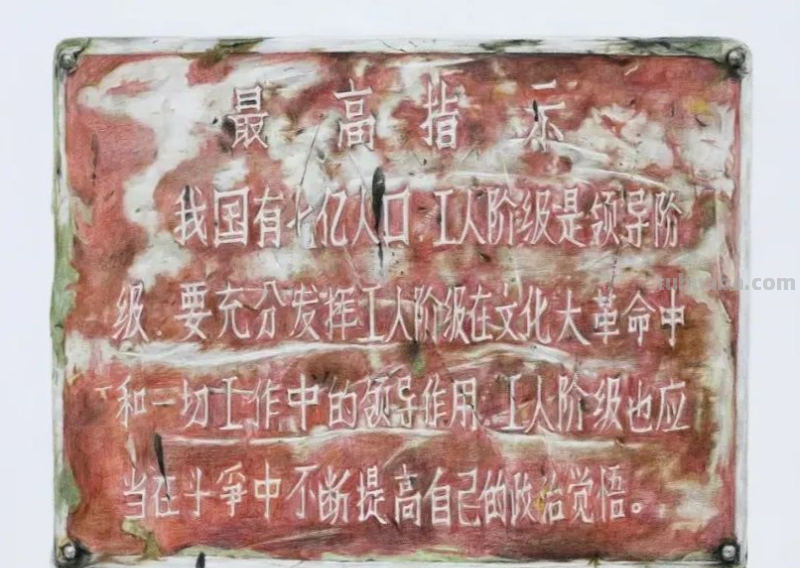 最高指示
我国有七亿人口,工人阶级是领导阶
级.要充分发挥工人阶级在文化大革命中
和一切工作中的领导作用.工人阶级也应
当在斗争中不断提高自己的政治觉悟。